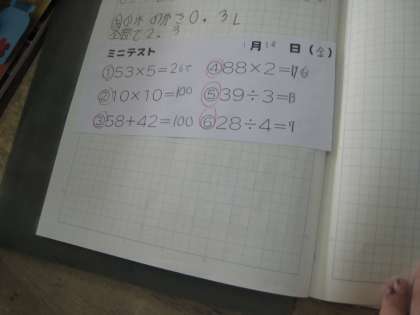 のかさ0.3L
全部で2.3
ミニテスト 1月 日(金)
①53×5=265 ④88×2=176
②10×10=100 ⑤39÷3=13
③58+42=100 ⑥28÷4=7